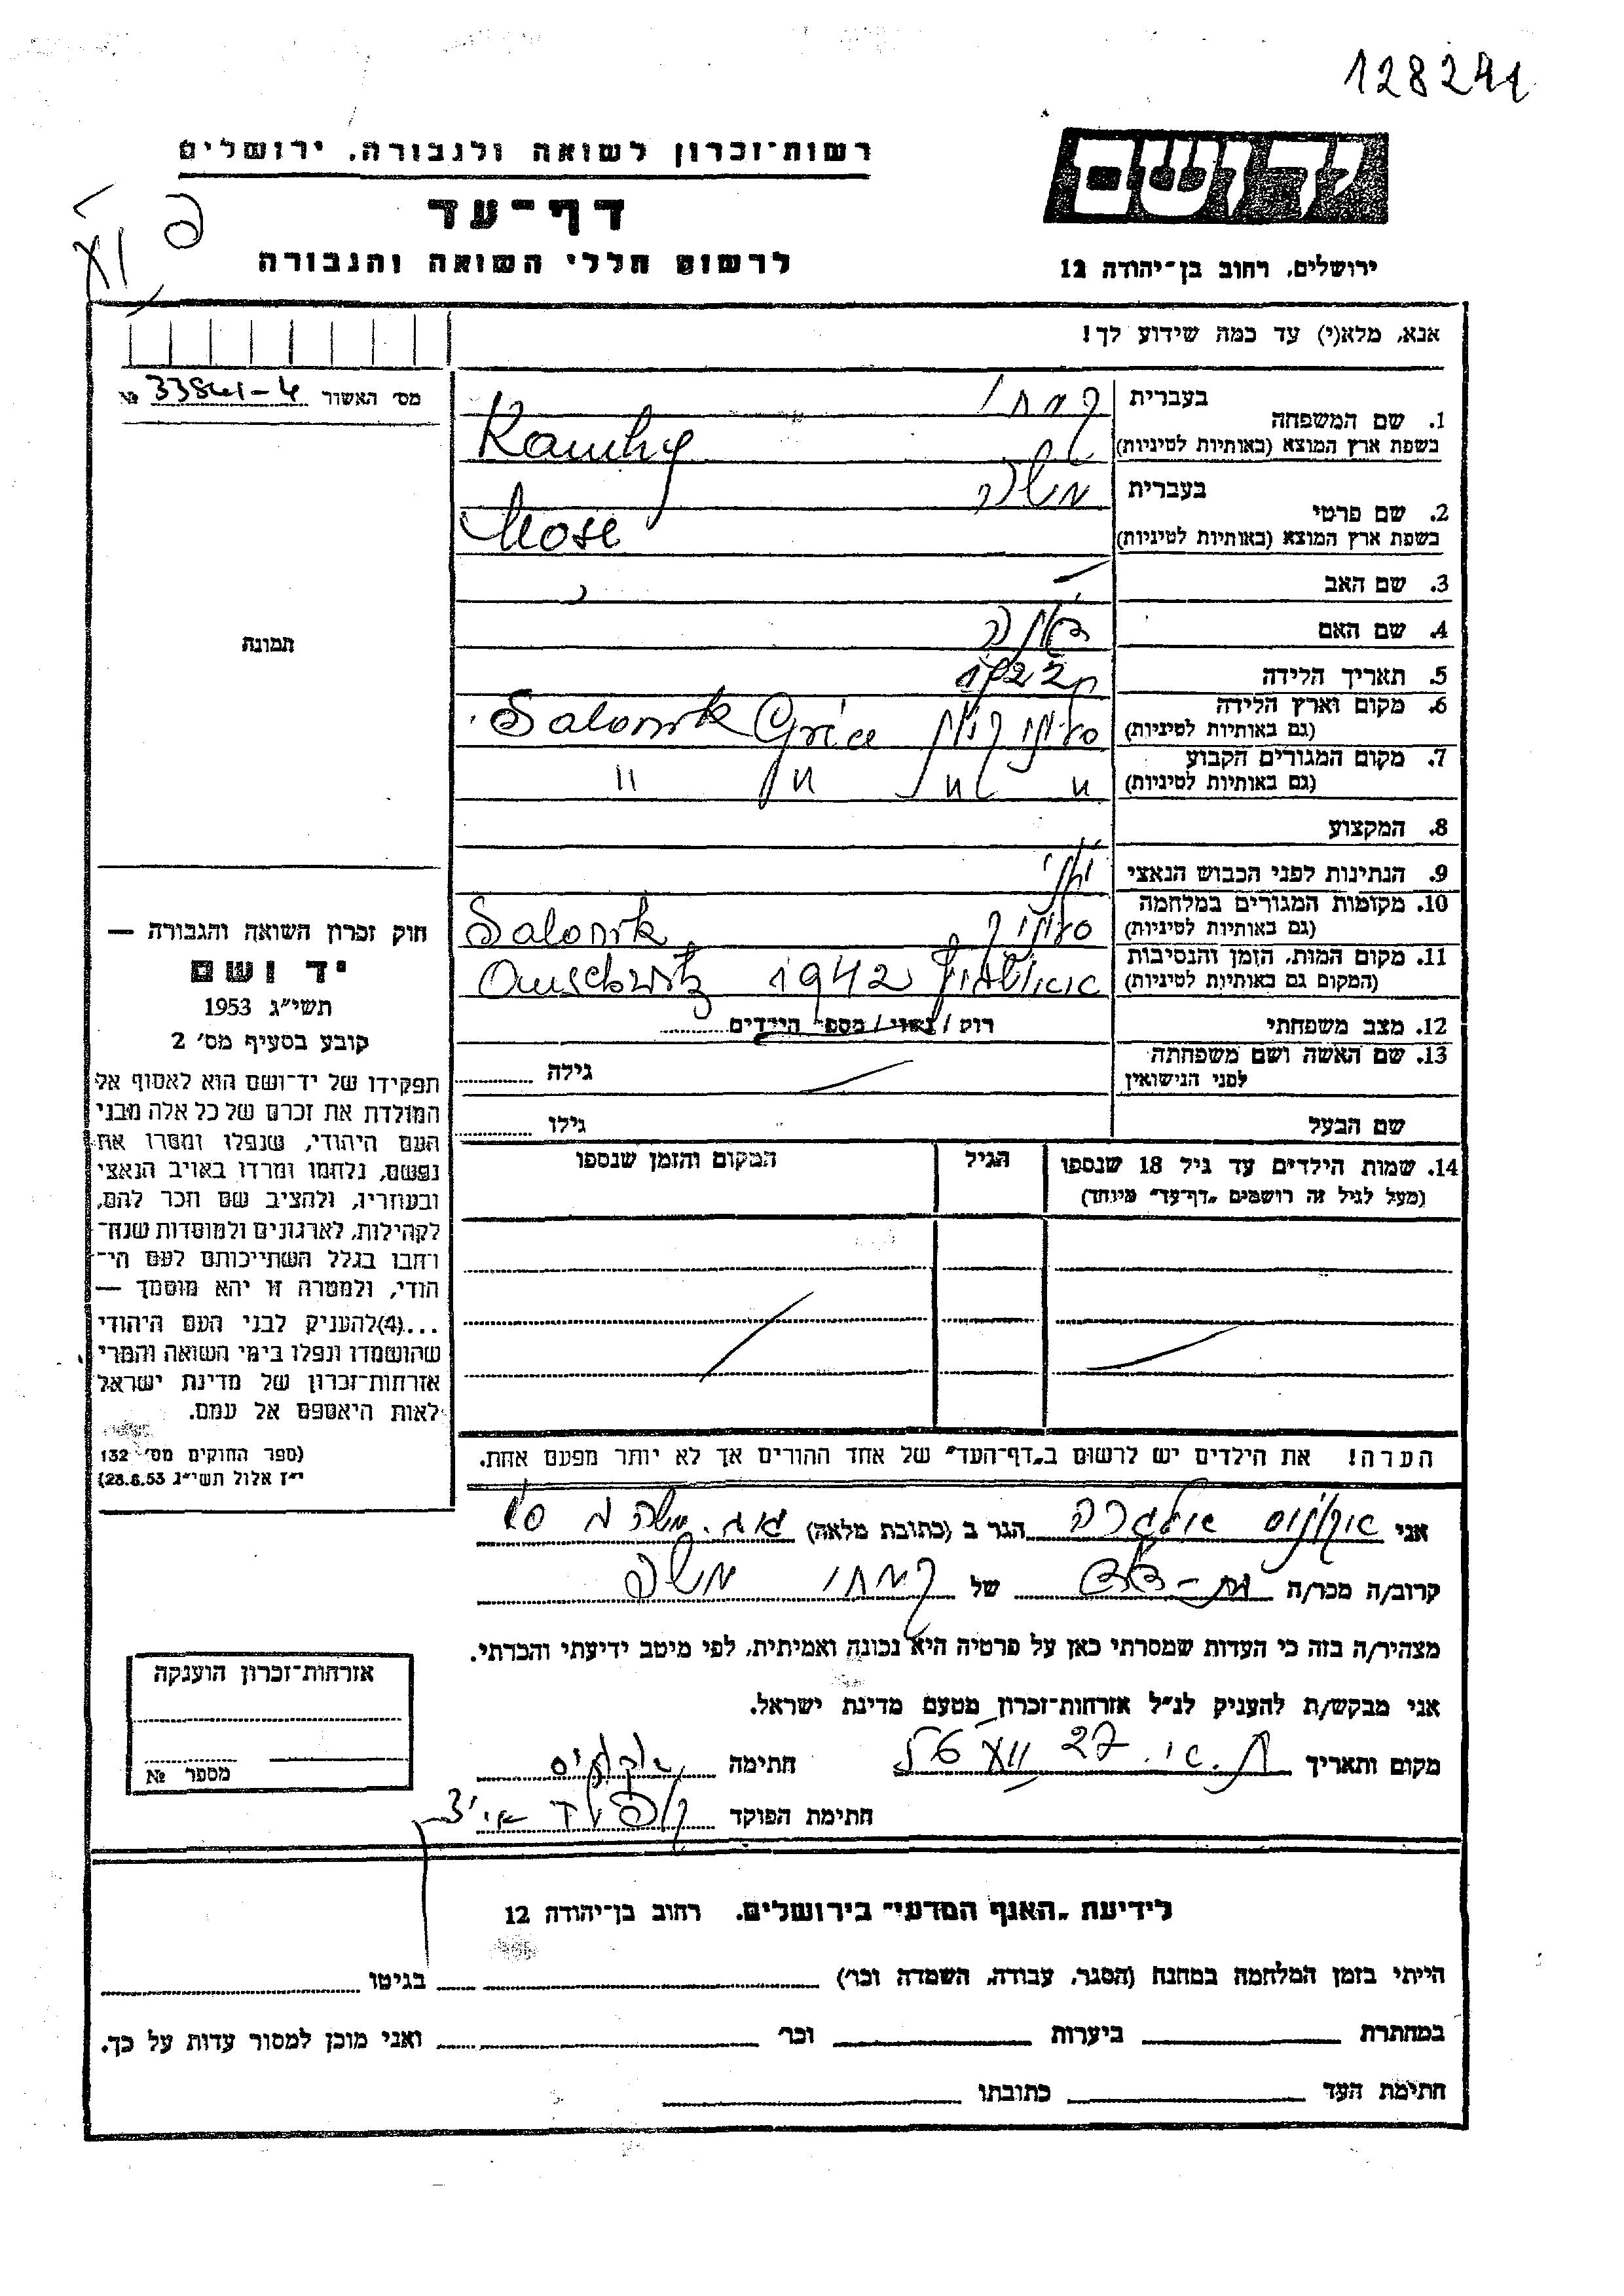 128241
רשות־זכרון לשואה ולגבורה, ירושלים
דף־עד
לרשום חללי השואה והגבורה
יד ושם
ירושלים, רחוב בן־יהודה 12
אנא, מלא(י) עד כמה שידוע לך!
מס׳ האשור 33841-4 №
תמונה
1. שם המשפחה
בעברית קמחי
בשפת ארץ המוצא (באותיות לטיניות) Kamhy
2. שם פרטי
בעברית משה
בשפת ארץ המוצא (באותיות לטיניות) Mose
3. שם האב
4. שם האם
5. תאריך הלידה 1922
6. מקום וארץ הלידה
(גם באותיות לטיניות) סלוניקי יון Salonik Grèce
7. מקום המגורים הקבוע
(גם באותיות לטיניות) " " " "
8. המקצוע
9. הנתינות לפני הכבוש הנאצי יוני
10. מקומות המגורים במלחמה
(גם באותיות לטיניות) סלוניקי Salonik
11. מקום המות, הזמן והנסיבות
(המקום גם באותיות לטיניות) אושויץ 1942 Auschwitz
12. מצב משפחתי רוק/נשוי/מספר הילדים
13. שם האשה ושם משפחתה
לפני הנישואין גילה
שם הבעל גילו
14. שמות הילדים עד גיל 18 שנספו
(מעל לגיל זה רושמים „דף־עד״ מיוחד)
הגיל
המקום והזמן שנספו
הערה! את הילדים יש לרשום ב„דף־העד״ של אחד ההורים אך לא יותר מפעם אחת.
חוק זכרון השואה והגבורה —
יד ושם
תשי״ג 1953
קובע בסעיף מס׳ 2
תפקידו של יד־ושם הוא לאסוף אל
המולדת את זכרם של כל אלה מבני
העם היהודי, שנפלו ומסרו את
נפשם, נלחמו ומרדו באויב הנאצי
ובעוזריו, ולהציב שם וזכר להם,
לקהילות, לארגונים ולמוסדות שנח־
רבו בגלל השתייכותם לעם הי־
הודי, ולמטרה זו יהא מוסמך —
...(4)להעניק לבני העם היהודי
שהושמדו ונפלו בימי השואה והמרי
אזרחות־זכרון של מדינת ישראל
לאות היאספם אל עמם.
(ספר החוקים מס׳ 132
י״ז אלול תשי״ג 28.8.53)
אני הגר ב (כתובת מלאה)
קרוב/ה מכר/ה בת-דוד של קמחי משה
מצהיר/ה בזה כי העדות שמסרתי כאן על פרטיה היא נכונה ואמיתית, לפי מיטב ידיעתי והכרתי.
אני מבקש/ת להעניק לנ״ל אזרחות־זכרון מטעם מדינת ישראל.
מקום ותאריך חתימה
חתימת הפוקד
אזרחות־זכרון הוענקה
מספר №
לידיעת „האגף המדעי״ בירושלים, רחוב בן־יהודה 12
הייתי בזמן המלחמה במחנה (הסגר, עבודה, השמדה וכו׳) בגיטו
במחתרת ביערות וכו׳ ואני מוכן למסור עדות על כך.
חתימת העד כתובתו